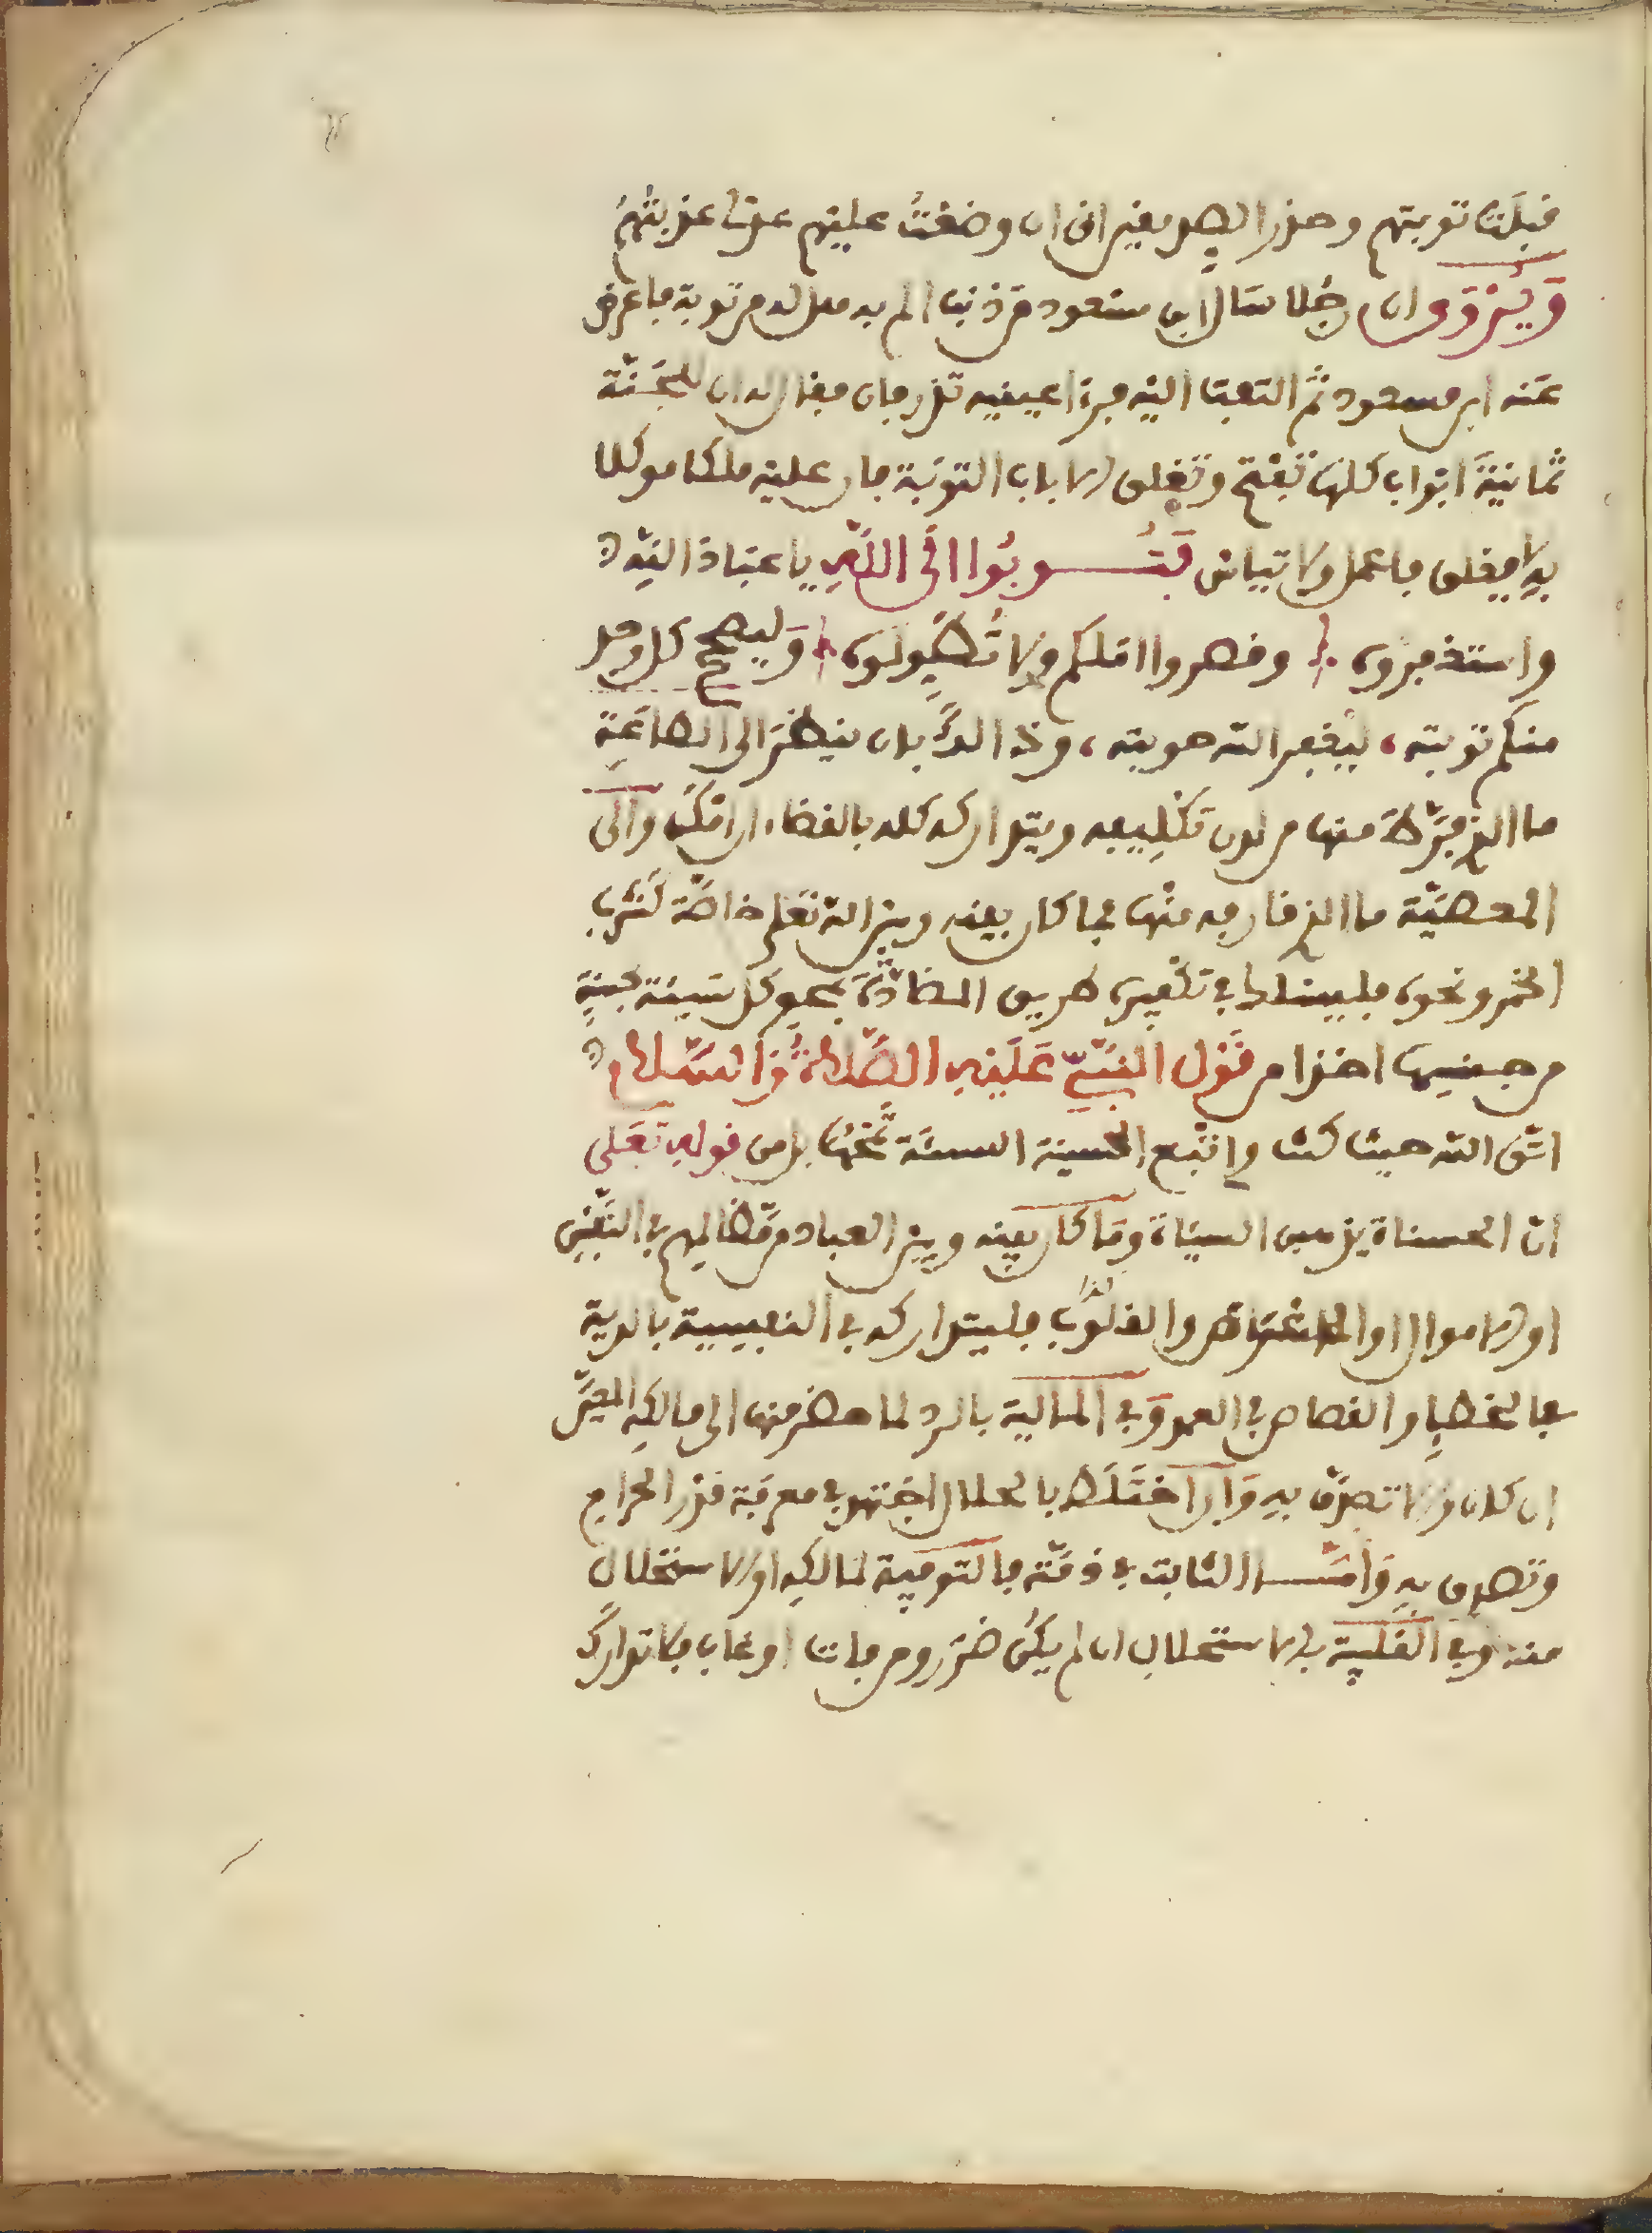 قبلت توبتهم وحذر الصديقين اني ان وضعت عليهم عدلي عذبتهم
ويروى ان رجلا سال ابن مسعود من ذنب الم به هل له من توبة فاعرض
عنه ابن مسعود ثم التفت اليه فرءا عينيه تذرفان فقال له ان للجنة
ثمانية ابواب كلها تفتح وتغلق الا باب التوبة فان عليه ملكا موكلا
به لا يغلق فاعمل ولا تياس فتوبوا الى الله يا عباد الله
واستغفروه وقصروا املكم ولا تطولوه وليصحح كل رجل
منكم توبته، ليغفر الله حوبته، وذالك بان ينظر الى الطاعة
ما الذي فرط منها من لدن تكليفه ويتدارك كله بالقضاء ان امكن والى
المعصية ما الذي قارفه منها فما كان بينه وبين الله تعلى خاصة كشرب
الخمر ونحوه فليسلك في تكفيره طريق المضادة بمحو كل سيئة بحسنة
من جنسها اخذا من قول النبي عليه الصلاة والسلام
اتق الله حيث كنت واتبع الحسنة السيئة تمحها بل من قوله تعلى
ان الحسناة يذهبن السيئاة وما كان بينه وبين العباد من مظالمهم في النفس
او الاموال او الاعراض والقلوب فليتدارك في النفسية بالدية
في الخطإ والقصاص في العمد وفي المالية بالرد لما حضر منها الى مالكه المعين
ان كان والا تصدق به وان اختلط بالحلال اجتهد في معرفة قدر الحرام
وتصدق به واما الثابت في ذمته فالتوفية لمالكه او الاستحلال
منه وفي القلبية بالاستحلال ان لم يكن ضرر ومن مات او غاب فلا تدارك